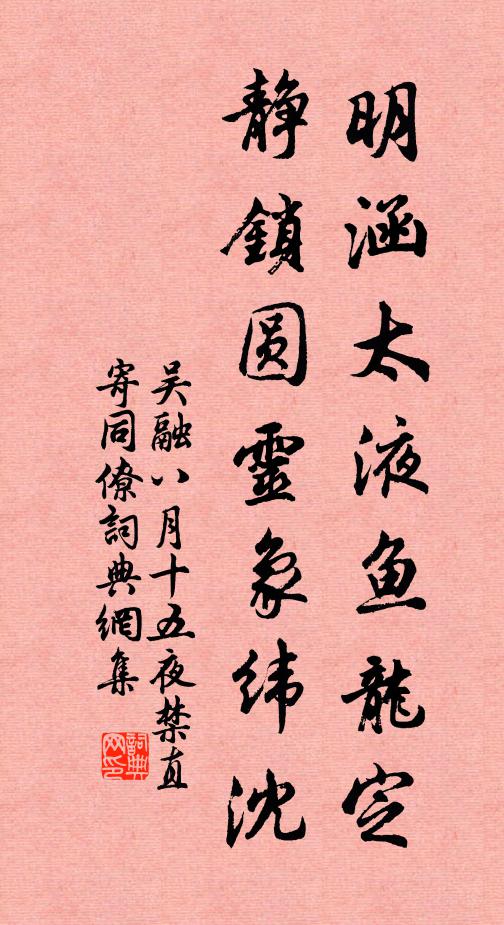 明涵太液鱼龍定
静鎖圆靈象緯沈
吴融八月十五夜禁直
寄同僚詞典網集
詞典
网印